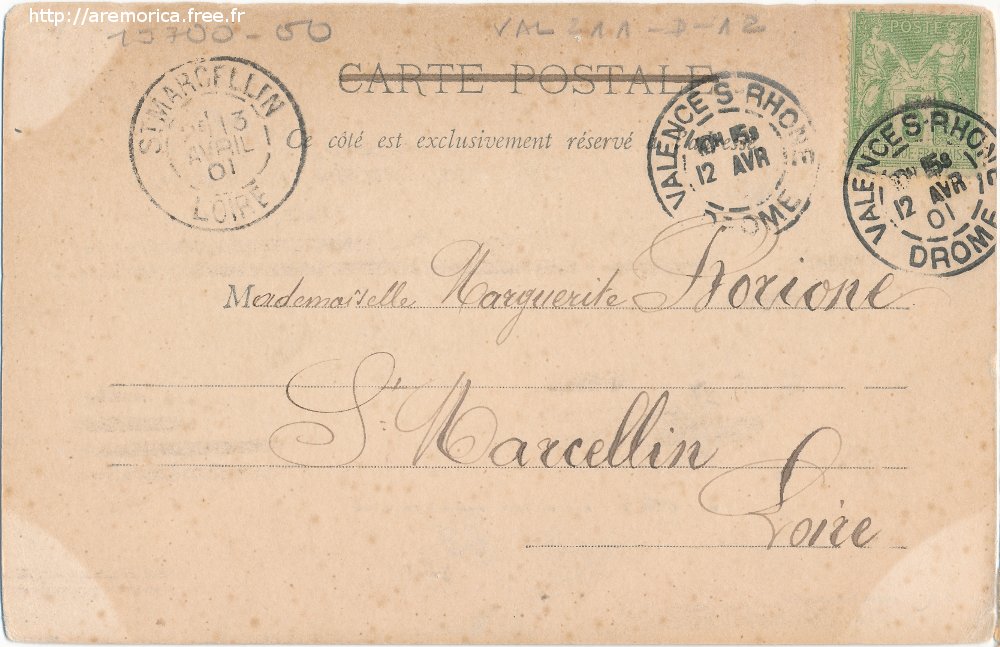 http://aremorica.free.fr
13700-50
VAL 211-D-12
CARTE POSTALE
POSTE
ST MARCELLIN
13
AVRIL
01
LOIRE
Ce côté est exclusivement réservé à l'adresse
VALENCE S-RHONE
12 AVR
DROME
VALENCE S-RHONE
12 AVR
01
DROME
Mademoiselle Marguerite Rorione
St. Marcellin
Loire